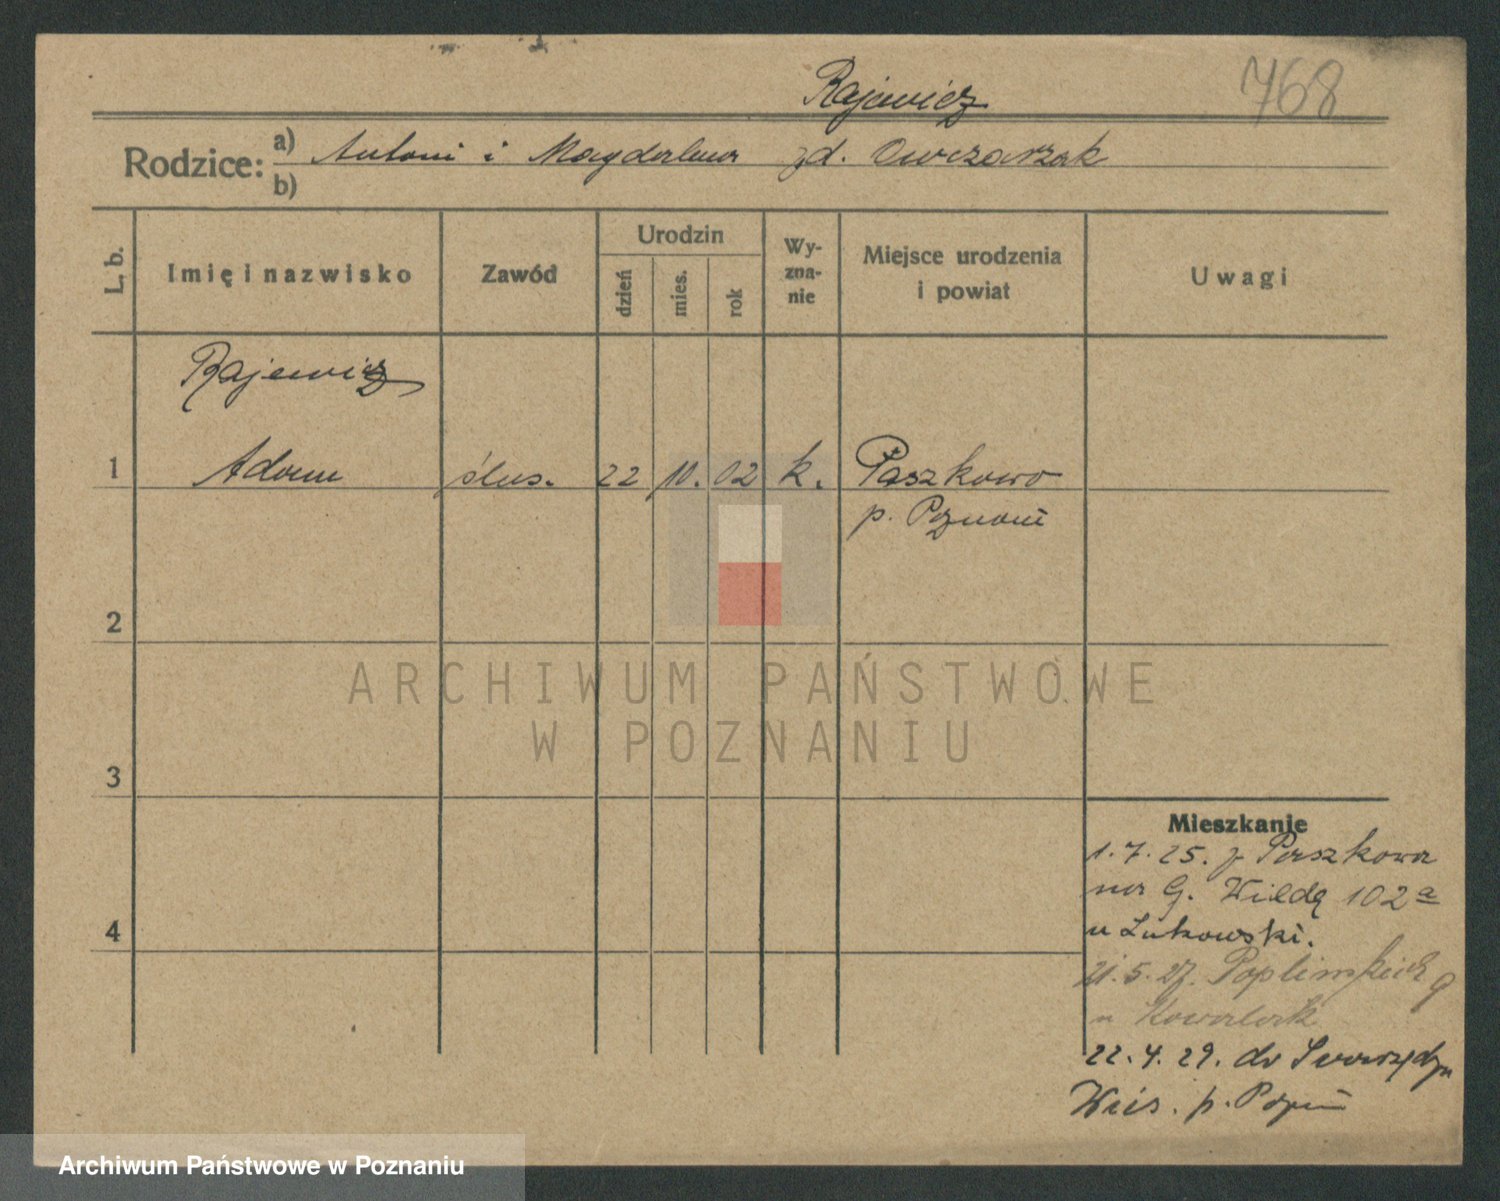 Rajewicz
768
Rodzice: a) Antoni i Magdalena zd. Owczarzak
b)
L. b.
Imię i nazwisko
Zawód
Urodzin
dzień
mies.
rok
Wy-
zna-
nie
Miejsce urodzenia
i powiat
Uwagi
Rajewicz
1 Adam ślus. 22 10. 02 k. Paszkowo
p. Poznań
2
3
4
ARCHIWUM PAŃSTWOWE
W POZNANIU
Mieszkanie
1.7.25. z Paszkowa
na G. Wildę 102a
u Lukowski.
21.5.27. Poplińskich 9
u Kowalak
22.4.29. do Swarzędz
Wieś. p. Pozn
Archiwum Państwowe w Poznaniu